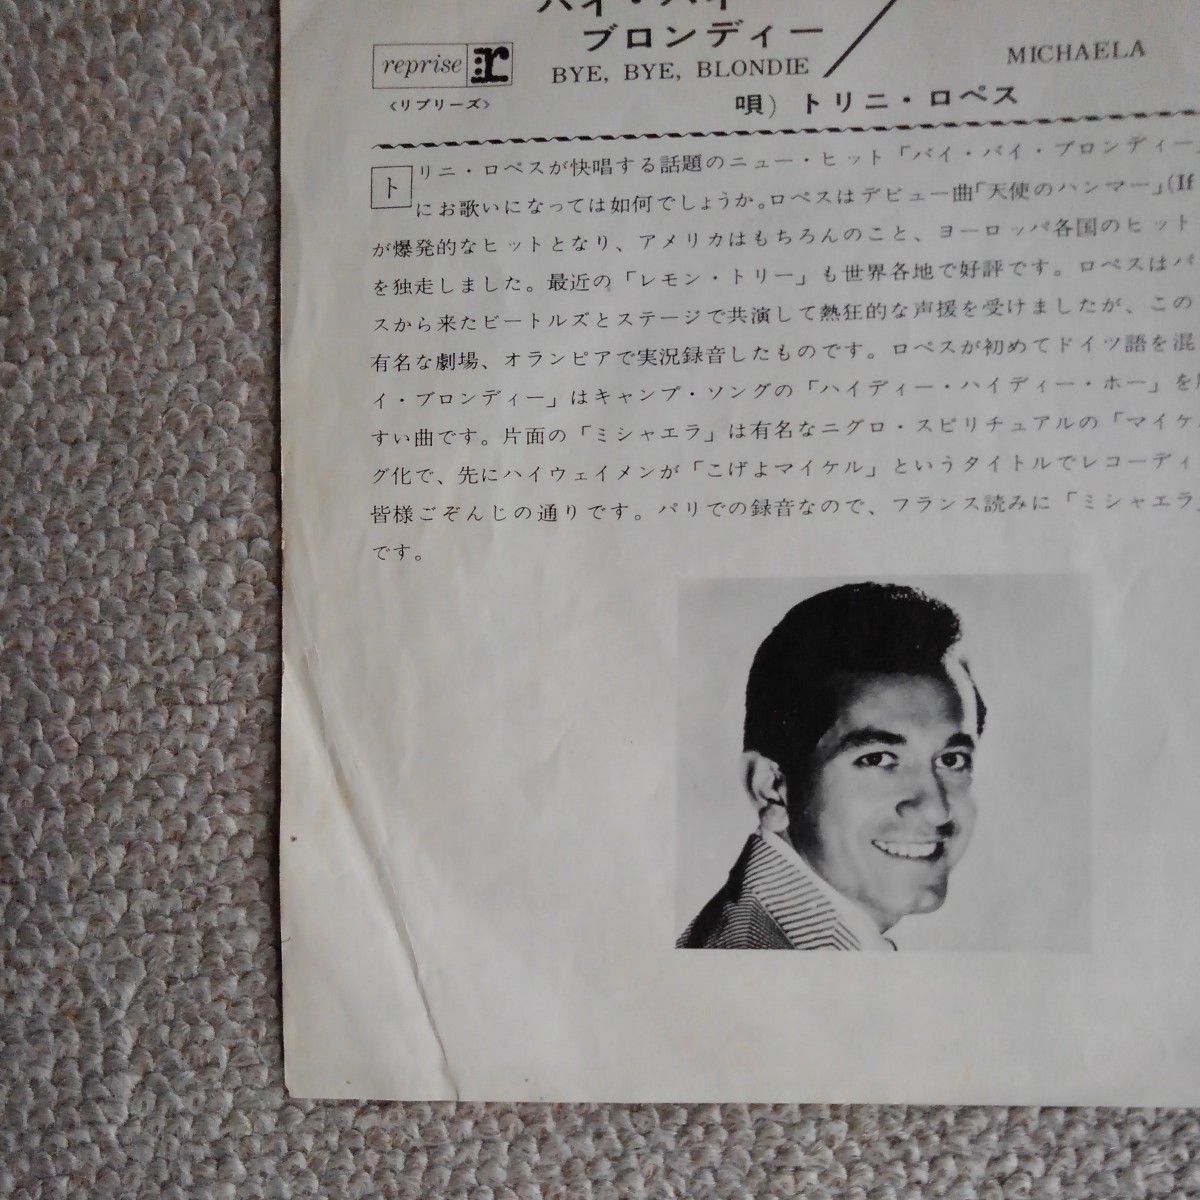 バイ・バイ
ブロンディー
BYE, BYE, BLONDIE
MICHAELA
reprise r
《リプリーズ》
唄) トリニ・ロペス
トリニ・ロペスが快唱する話題のニュー・ヒット「バイ・バイ・ブロンディー」
にお歌いになっては如何でしょうか。ロペスはデビュー曲「天使のハンマー」(If
が爆発的なヒットとなり、アメリカはもちろんのこと、ヨーロッパ各国のヒット
を独走しました。最近の「レモン・トリー」も世界各地で好評です。ロペスはパ
スから来たビートルズとステージで共演して熱狂的な声援を受けましたが、この
有名な劇場、オランピアで実況録音したものです。ロペスが初めてドイツ語を混
イ・ブロンディー」はキャンプ・ソングの「ハイディー・ハイディー・ホー」を
すい曲です。片面の「ミシャエラ」は有名なニグロ・スピリチュアルの「マイケル
グ化で、先にハイウェイメンが「こげよマイケル」というタイトルでレコーディ
皆様ごぞんじの通りです。パリでの録音なので、フランス読みに「ミシャエラ」
です。